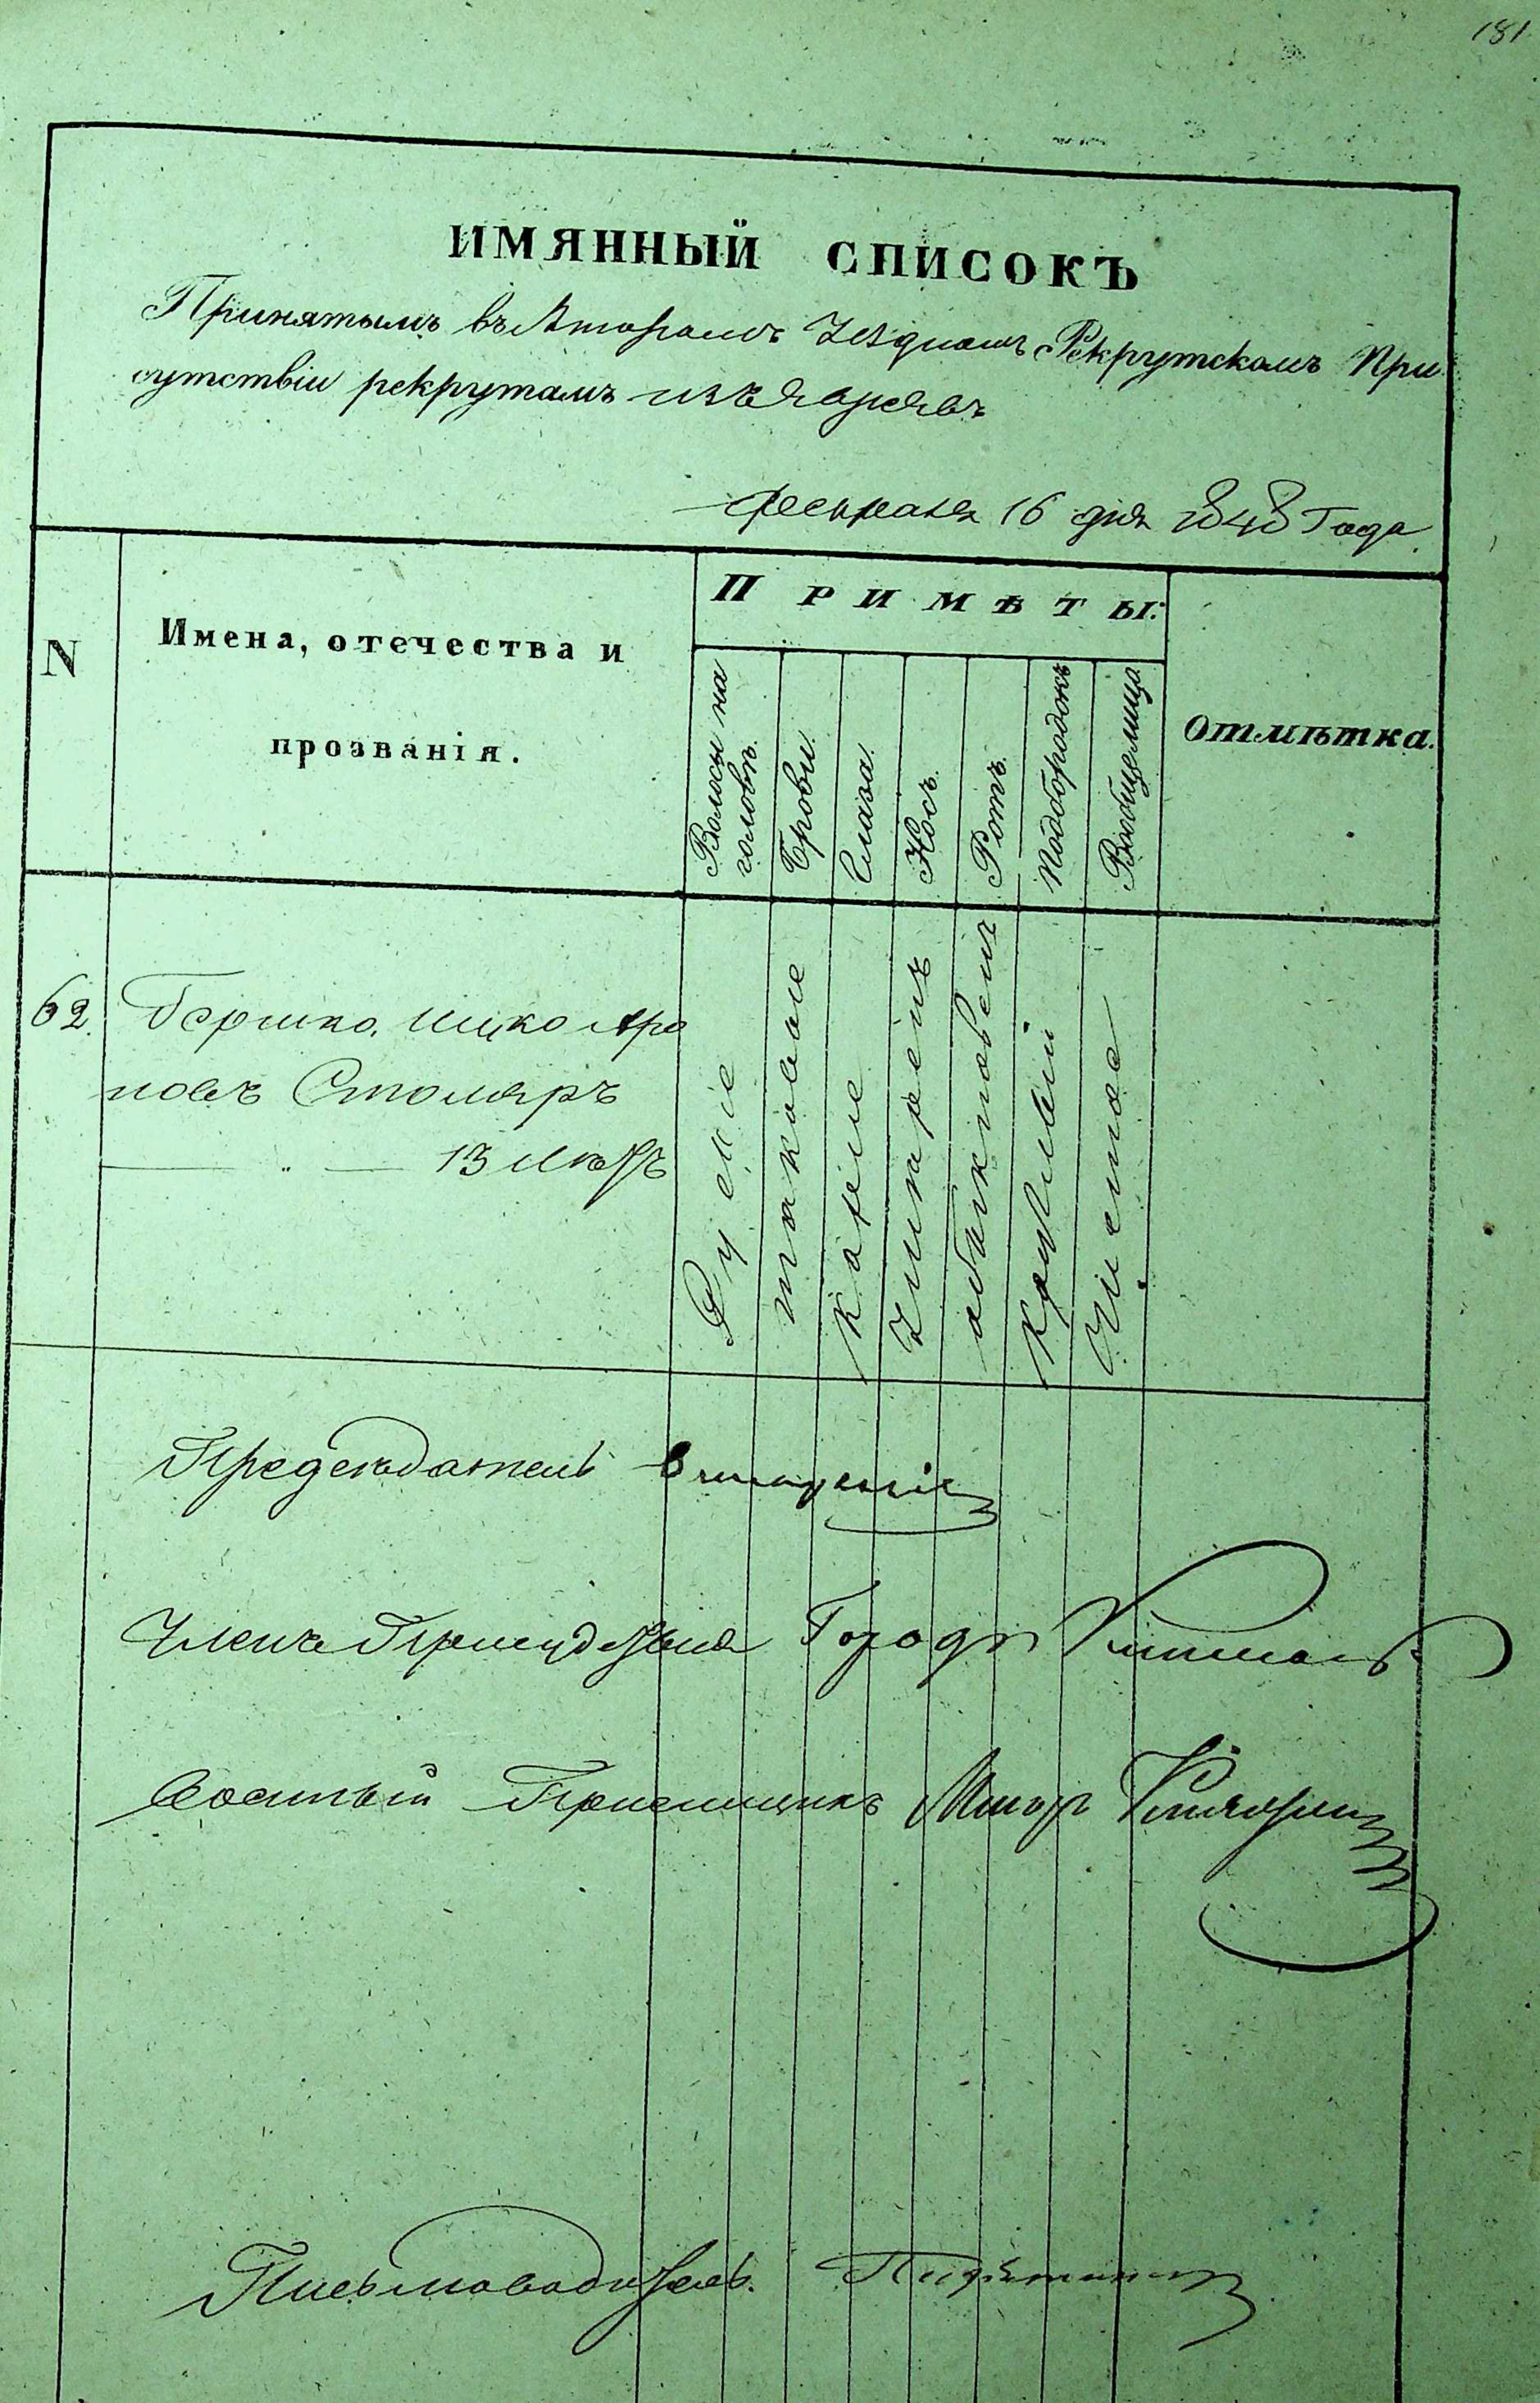 181
ИМЯННЫЙ СПИСОКЪ
Принятымъ въ Второмъ Уѣздномъ Рекрутскомъ При
сутствіи рекрутамъ изъ евреевъ
февраля 16 дня 1848 Года
N
Имена, отечества и
прозванія.
ПРИМѢТЫ:
Волосы на
головѣ.
Брови
Глаза
Носъ
Ротъ
Подбородокъ
Вообще лицо
Отмѣтка.
62. Гершко Ицко Аро
новъ Столяръ
13 лѣтъ
Русые
таковые
Каріе
Умѣренъ
обыкновен
Круглый
Чистое
Предсѣдатель
Членъ Присудствія
Военный Пріемщикъ Маіоръ
Письмоводитель